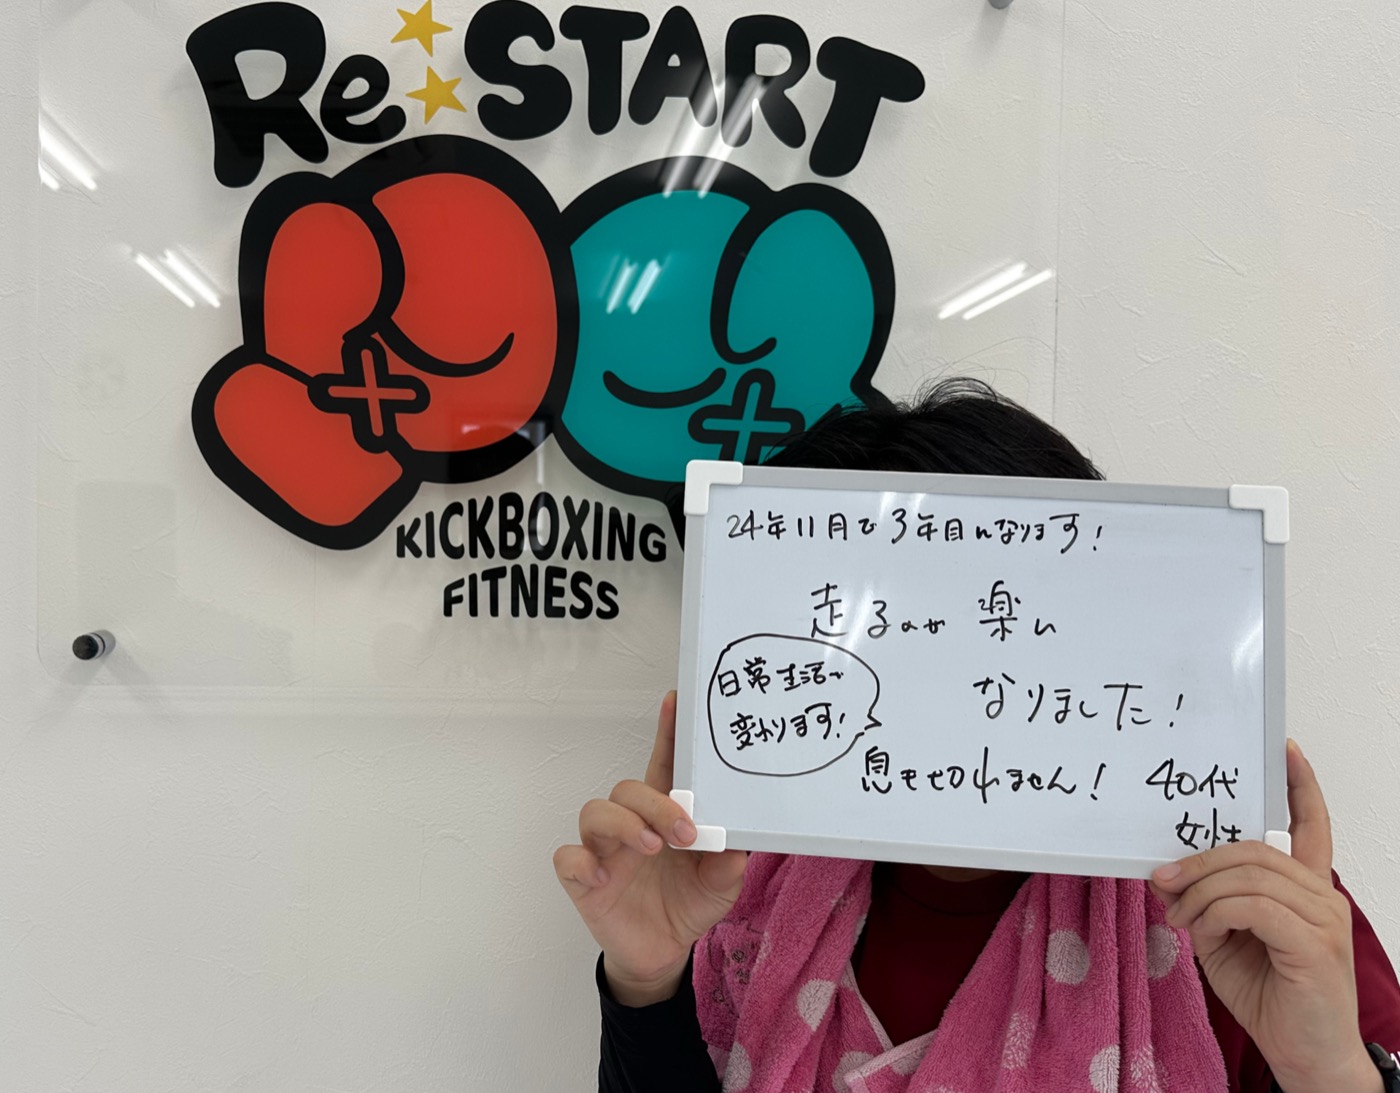 Re START
KICKBOXING
FITNESS
24年11月で3年目になります!
走るのが楽に
なりました!
日常生活で
変わります!
息も切れません!
40代
女性